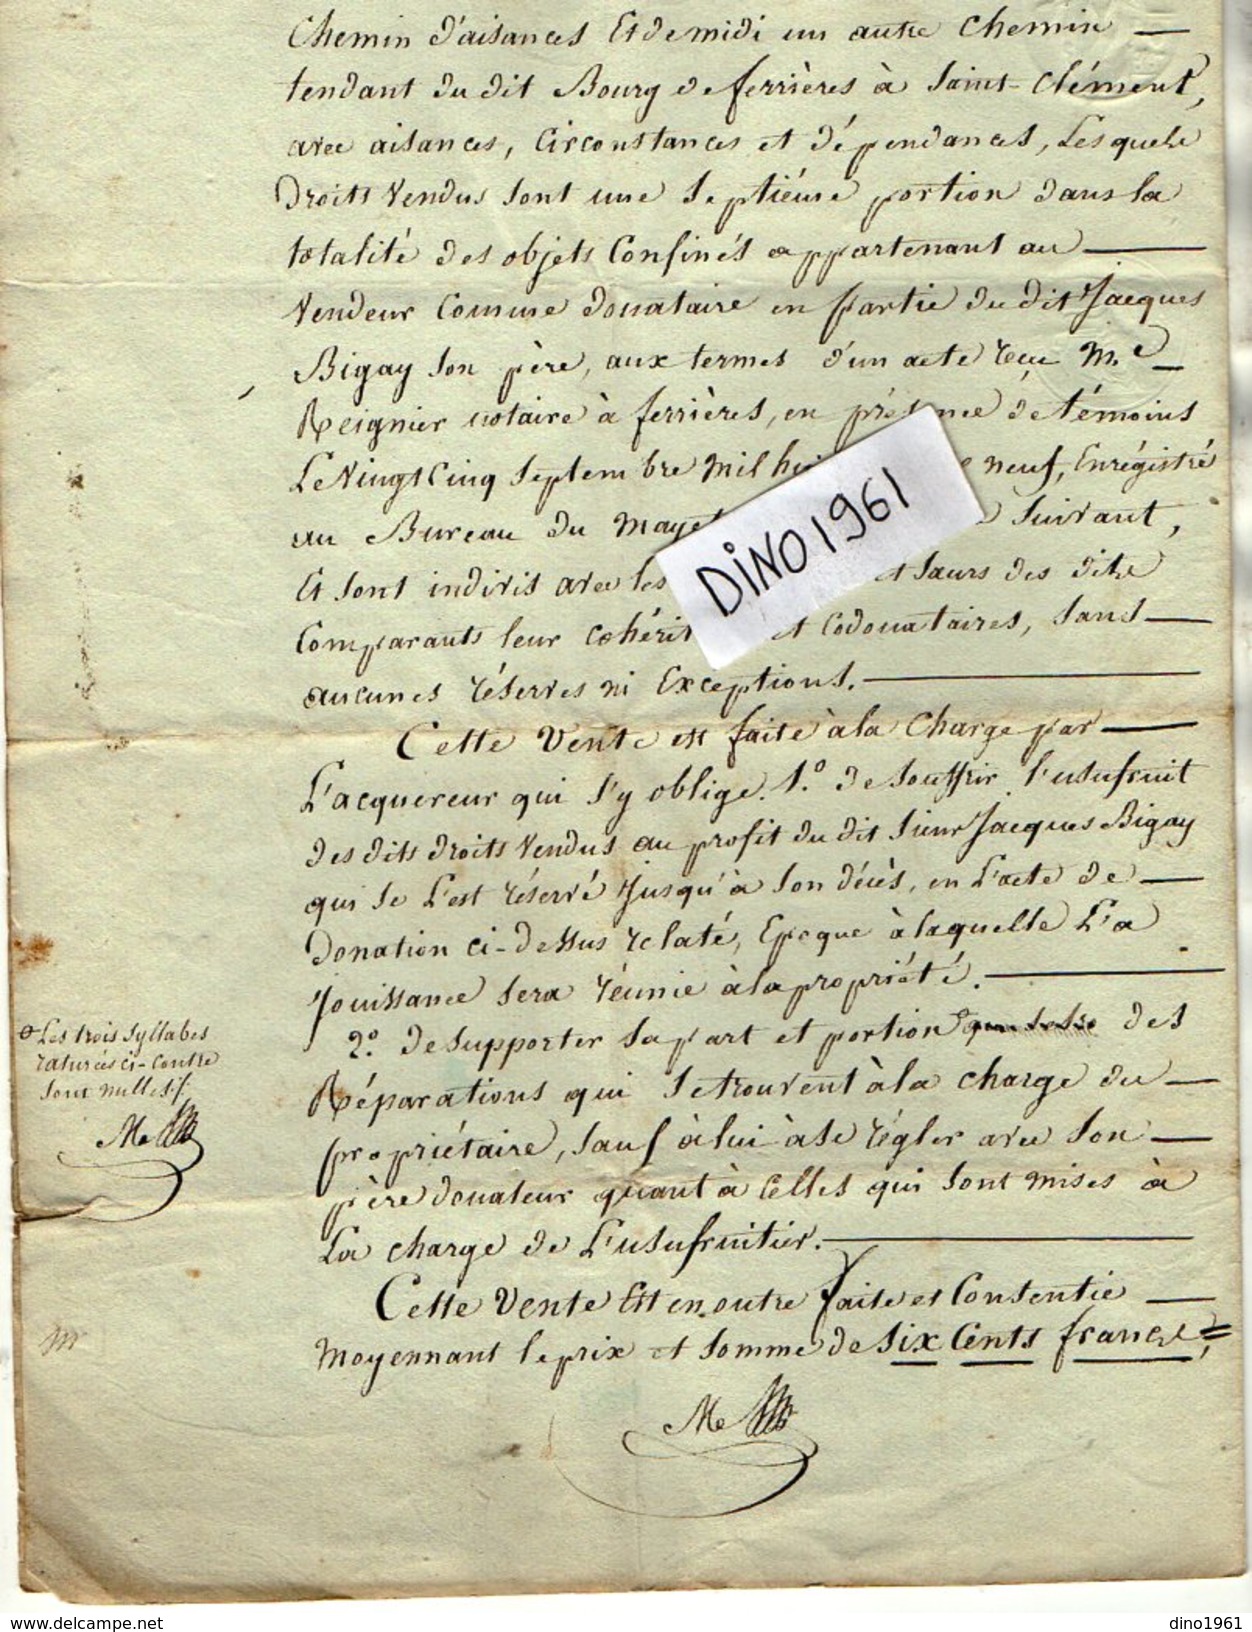 Chemin d'aisances Et de midi un autre Chemin —
tendant du dit Bourg de ferrières à Saint-Clément,
avec aisances, Circonstances et dépendances, Lesquels
Droits Vendus Sont une Septiéme portion dans la
totalité des objets Confinés appartenant au —
Vendeur Comme donataire en partie du dit Jacques
Bigay Son père, aux termes d'un acte reçu M.e —
Reignier notaire à ferrières, en présence de témoins
Le Vingt Cinq Septembre Mil neuf, Enrégistré
au Bureau du Mayet Suivant,
Et Sont indivis avec les et Sœurs des dits
Comparants leur cohérit et Codonataires, Sans —
aucunes réserves ni Exceptions. —
Cette Vente est faite à la Charge par —
L'acquereur qui S'y oblige. 1.° de Souffrir l'usufruit
des dits droits Vendus au profit du dit Sieur Jacques Bigay
qui Se L'est réservé Jusqu'à Son décès, en L'acte de —
Donation ci-dessus relaté, Epoque à laquelle L'a
Jouissance Sera réunie à la propriété. —
2.° de Supporter Sa part et portion des
Réparations qui Se trouvent à la charge du —
propriétaire, Sauf à lui à Se régler avec Son —
père donateur quant à Celles qui Sont mises à
La charge de L'usufruitier. —
Cette Vente Est en outre faite et Consentie —
Moyennant le prix et Somme de Six Cents francs,
Les trois Syllabes
raturées ci-Contre
Sont nulles
Me
Me
DINO1961
www.delcampe.net
dino1961